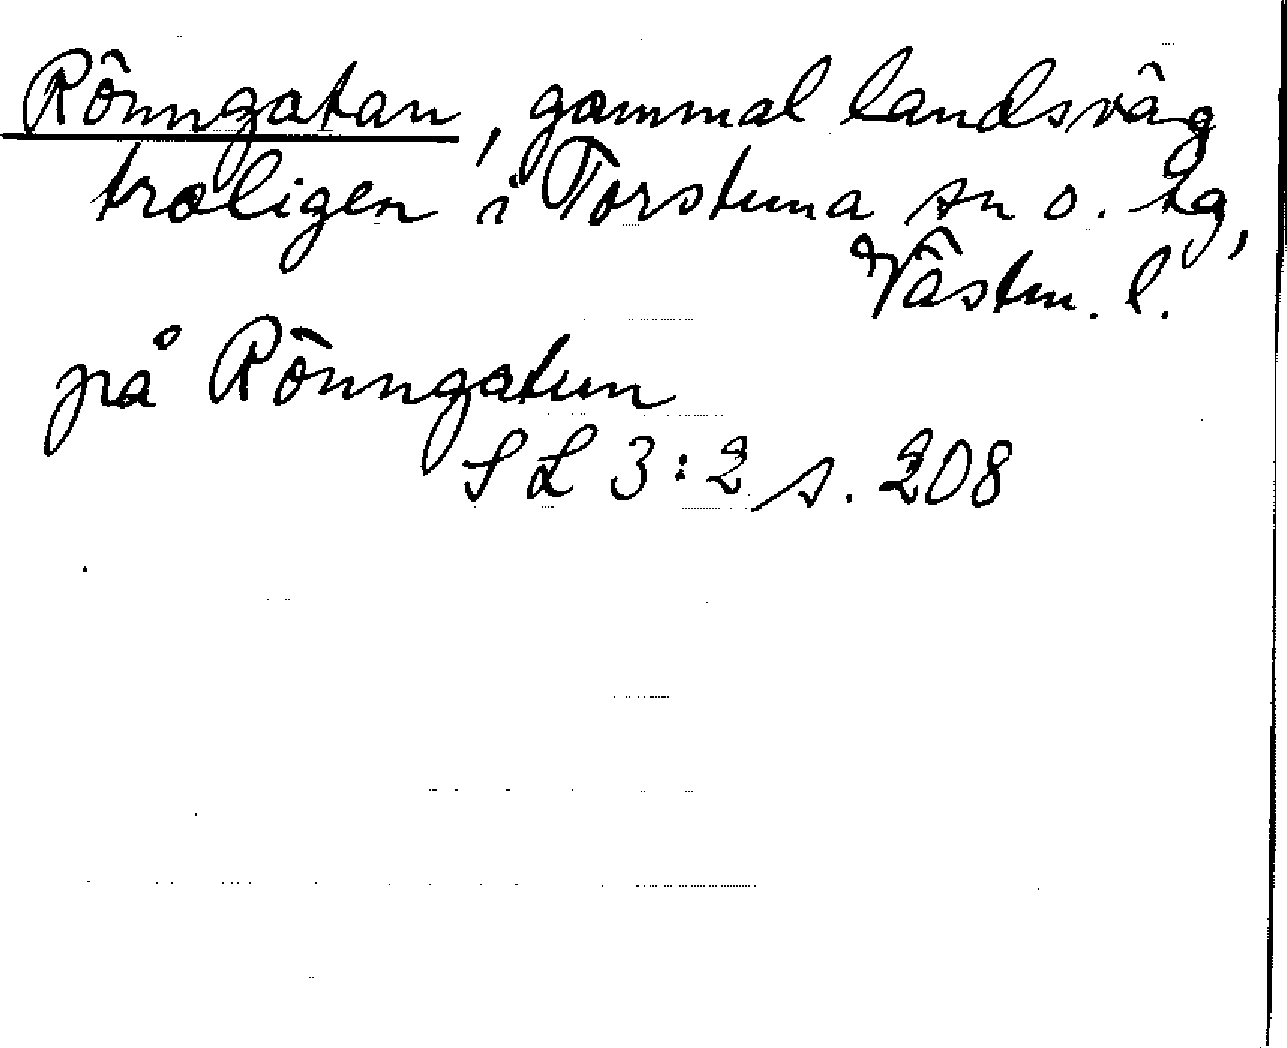 Rönngatan, gammal landsväg
troligen i Torstuna sn o. hg,
Västm. l.
på Rönngatun
SL 3:2 s. 208